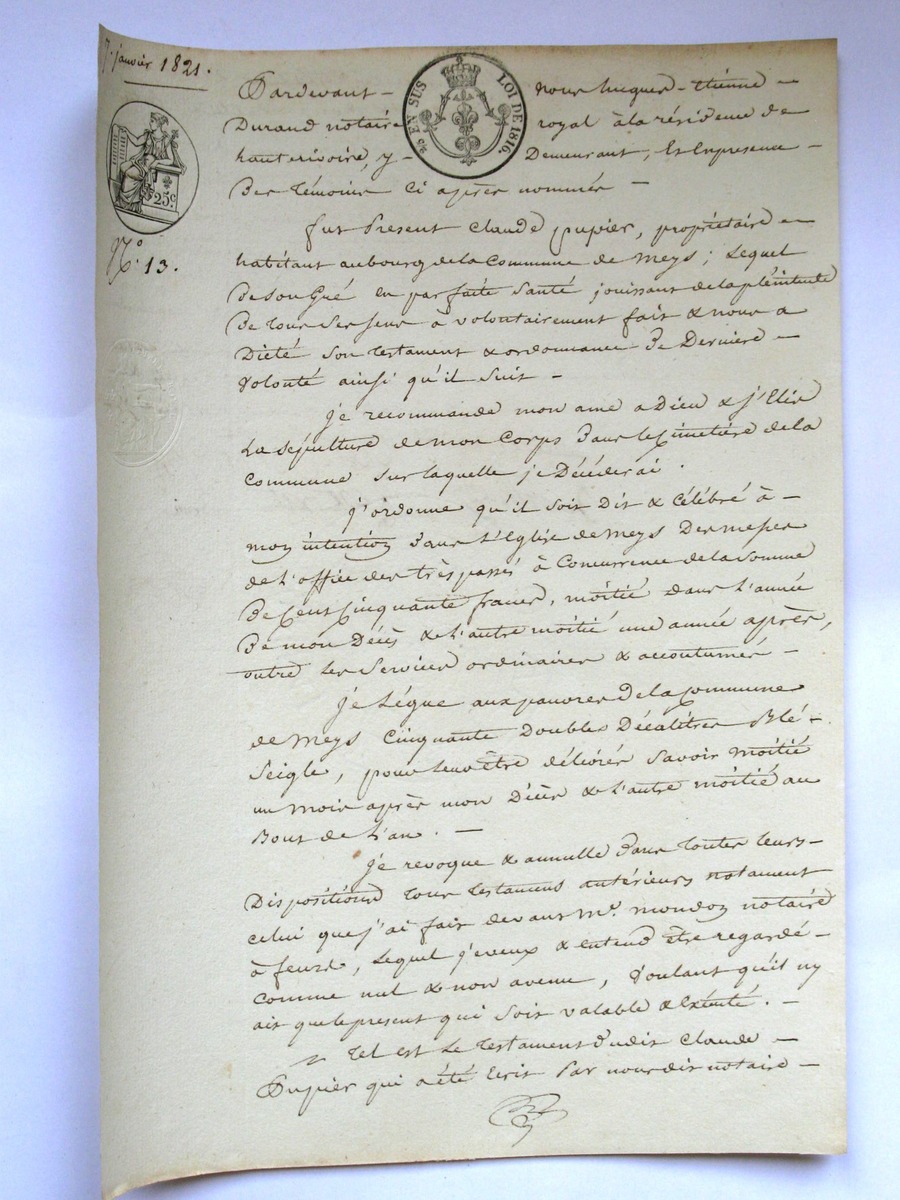 7. janvier 1821.
25 EN SUS
LOI DE 1816.
25c
No. 13.
Pardevant - nous hugues - étienne -
Durand notaire royal à la résidence de
hauterivoire, y - Demeurant, Et En presence -
Des témoins Ci après nommés -
fut Present Claude pupier, propriétaire -
habitant au bourg de la Commune de Meys ; Lequel
De Son Gré en parfaite Santé jouissant de la plénitude
De tous Ses Sens a volontairement fait & nous a
Dicté Son testament & ordonnance De Derniere -
Volonté ainsi qu'il Suit -
Je recommande mon ame a Dieu & j'Elis
La Sépulture de mon Corps Dans le Cimetière de la
Commune Sur laquelle je Décéderai.
J'ordonne qu'il Soit Dit & Célébré à -
mon intention Dans L'Eglise de Meys Des messes
de L'office des très passés à Concurrence de la Somme
De Cent Cinquante francs, moitié Dans L'année
De mon Décès & L'autre moitié une année après,
outre Les Services ordinaires & accoutumés -
Je Légue aux pauvres de la Commune
de Meys Cinquante Doubles Décalitres Blé -
Seigle, pour Leur être délivrés Savoir moitié
un Mois après mon Décès & L'autre moitié au
Bout de L'an. -
Je revoque & annulle Dans toutes leurs -
Dispositions tous testamens antérieurs notament
Celui que j'ai fait devant Me. mondon notaire
à feurs, Lequel je veux & entend être regardé -
Comme nul & non avenu, Voulant qu'il ny
ait que le present qui Soit valable & Exécuté. -
Tel est Le testament Dudit Claude -
Pupier qui a été Ecrit Par nous dit notaire -